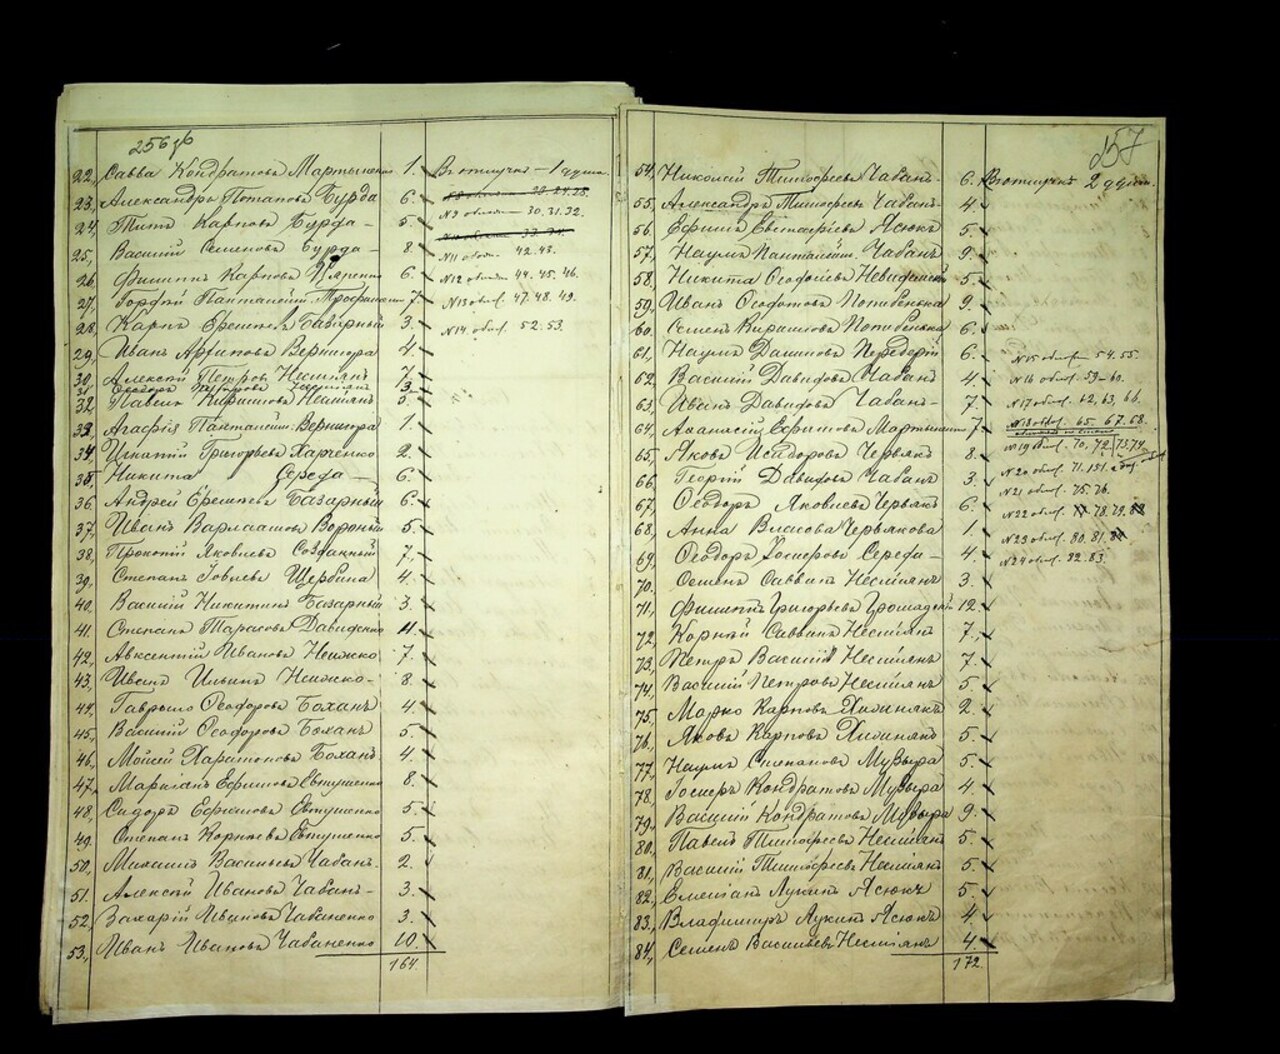 256 об
22, Савва Кондратовъ Мартыненко 1. Въ отлучкѣ – 1 душа.
23, Александръ Потаповъ Бурда 6. 23. 24. 28.
24, Титъ Карповъ Бурда – 5. №9 30. 31. 32.
25, Василій Семеновъ Бурда – 8. №11 42. 43.
26, Филиппъ Карповъ 6. №12 44. 45. 46.
27, Гордѣй Панталейм. Трофименко 7. №13 обыв. 47. 48. 49.
28, Карпъ Еремѣевъ Базарный 3. №14 обыв. 52. 53.
29, Иванъ Архиповъ Вернигора 4.
30, Алексѣй Петровъ Несміянъ 7.
31 Ѳеодоръ Несміянъ 3.
32, Павелъ Кирилловъ Несміянъ 5.
33, Агафія Панталейм. Вернигора 1.
34, Игнатій Григорьевъ Харченко 2.
35, Никита Середа – 6.
36, Андрей Еремѣевъ Базарный 6.
37, Иванъ Варлаамовъ Вороный 5.
38, Прокопій Яковлевъ Созданный 7.
39, Степанъ Іовлевъ Щербина 4.
40. Василій Никитинъ Базарный 3.
41. Степанъ Тарасовъ Давиденко 11.
42, Авксентій Ивановъ Нешко 7.
43, Иванъ Ильинъ Нешко – 8.
44, Гаврило Ѳеодоровъ Боханъ 4.
45, Василій Ѳеодоровъ Боханъ 5.
46, Мойсей Харитоновъ Боханъ. 4.
47, Маркіанъ Ефимовъ Евтушенко 8.
48, Сидоръ Ефимовъ Евтушенко 5.
49. Степанъ Корнѣевъ Евтушенко 5.
50, Михаилъ Васильевъ Чабанъ. 2.
51. Алексѣй Ивановъ Чабанъ – 3.
52, Захарій Ивановъ Чабаненко 3.
53, Иванъ Ивановъ Чабаненко 10.
164.
257
54, Николай Тимофеевъ Чабанъ. 6. Въ отлучкѣ 2 души.
55, Александръ Тимофеевъ Чабанъ 4.
56, Ефимъ Евстафіевъ Ясюкъ 5.
57, Наумъ Панталейм. Чабанъ 9.
58, Никита 5.
59, Иванъ Ѳедотовъ Потибенька 9.
60. Семенъ Кирилловъ Потибенька 6.
61, Наумъ Даниловъ Передерій 6. №15 обыв. 54. 55.
62, Василій Давидовъ Чабанъ 4. №16 обыв. 59–60.
63, Иванъ Давидовъ Чабанъ – 7. №17 обыв. 62, 63, 66.
64, Аѳанасій Ефимовъ Мартыненко 7. №18 обыв. 65. 67. 68.
65, Яковъ Исидоровъ Червякъ 8. №19 обыв. 70. 72. 73. 74.
66, Георгій Давидовъ Чабанъ 3. №20 обыв. 71. 151.
67, Ѳеодоръ Яковлевъ Червякъ 6. №21 обыв. 75. 76.
68, Анна Власова Червякова 1. №22 обыв. 78. 79.
69, Ѳеодоръ Середа – 4. №23 обыв. 80. 81.
70. Семенъ Саввинъ Несміянъ 3. №24 обыв. 82. 83.
71, Филиппъ Григорьевъ Громадскій 12.
72, Корнѣй Саввинъ Несміянъ 7.
73, Петръ Василій Несміянъ 7.
74, Василій Петровъ Несміянъ 5.
75. Марко Карповъ Химинякъ 2.
76, Яковъ Карповъ Химинякъ 5.
77, Наумъ Степановъ Музыра 5.
78, Кондратовъ Музыра 4.
79, Василій Кондратовъ Музыра 9.
80, Павелъ Тимофеевъ Несміянъ 5.
81, Василій Тимофеевъ Несміянъ 5.
82, Емеліанъ Лукинъ Ясюкъ 5.
83, Владиміръ Лукинъ Ясюкъ 4.
84, Семенъ Васильевъ Несміянъ 4.
172.